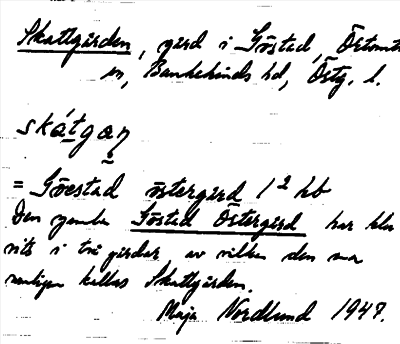 Skattgården, gård i Göstad, Örtomta
sn, Bankekinds hd, Östg. l.
skátgaṇ
= Göestad östergård 1² hb
Den gamla Göstad Östergård har blivit
i två gårdar av vilken den ena
vanligen kallas Skattgården.
Maja Nordlund 1947.